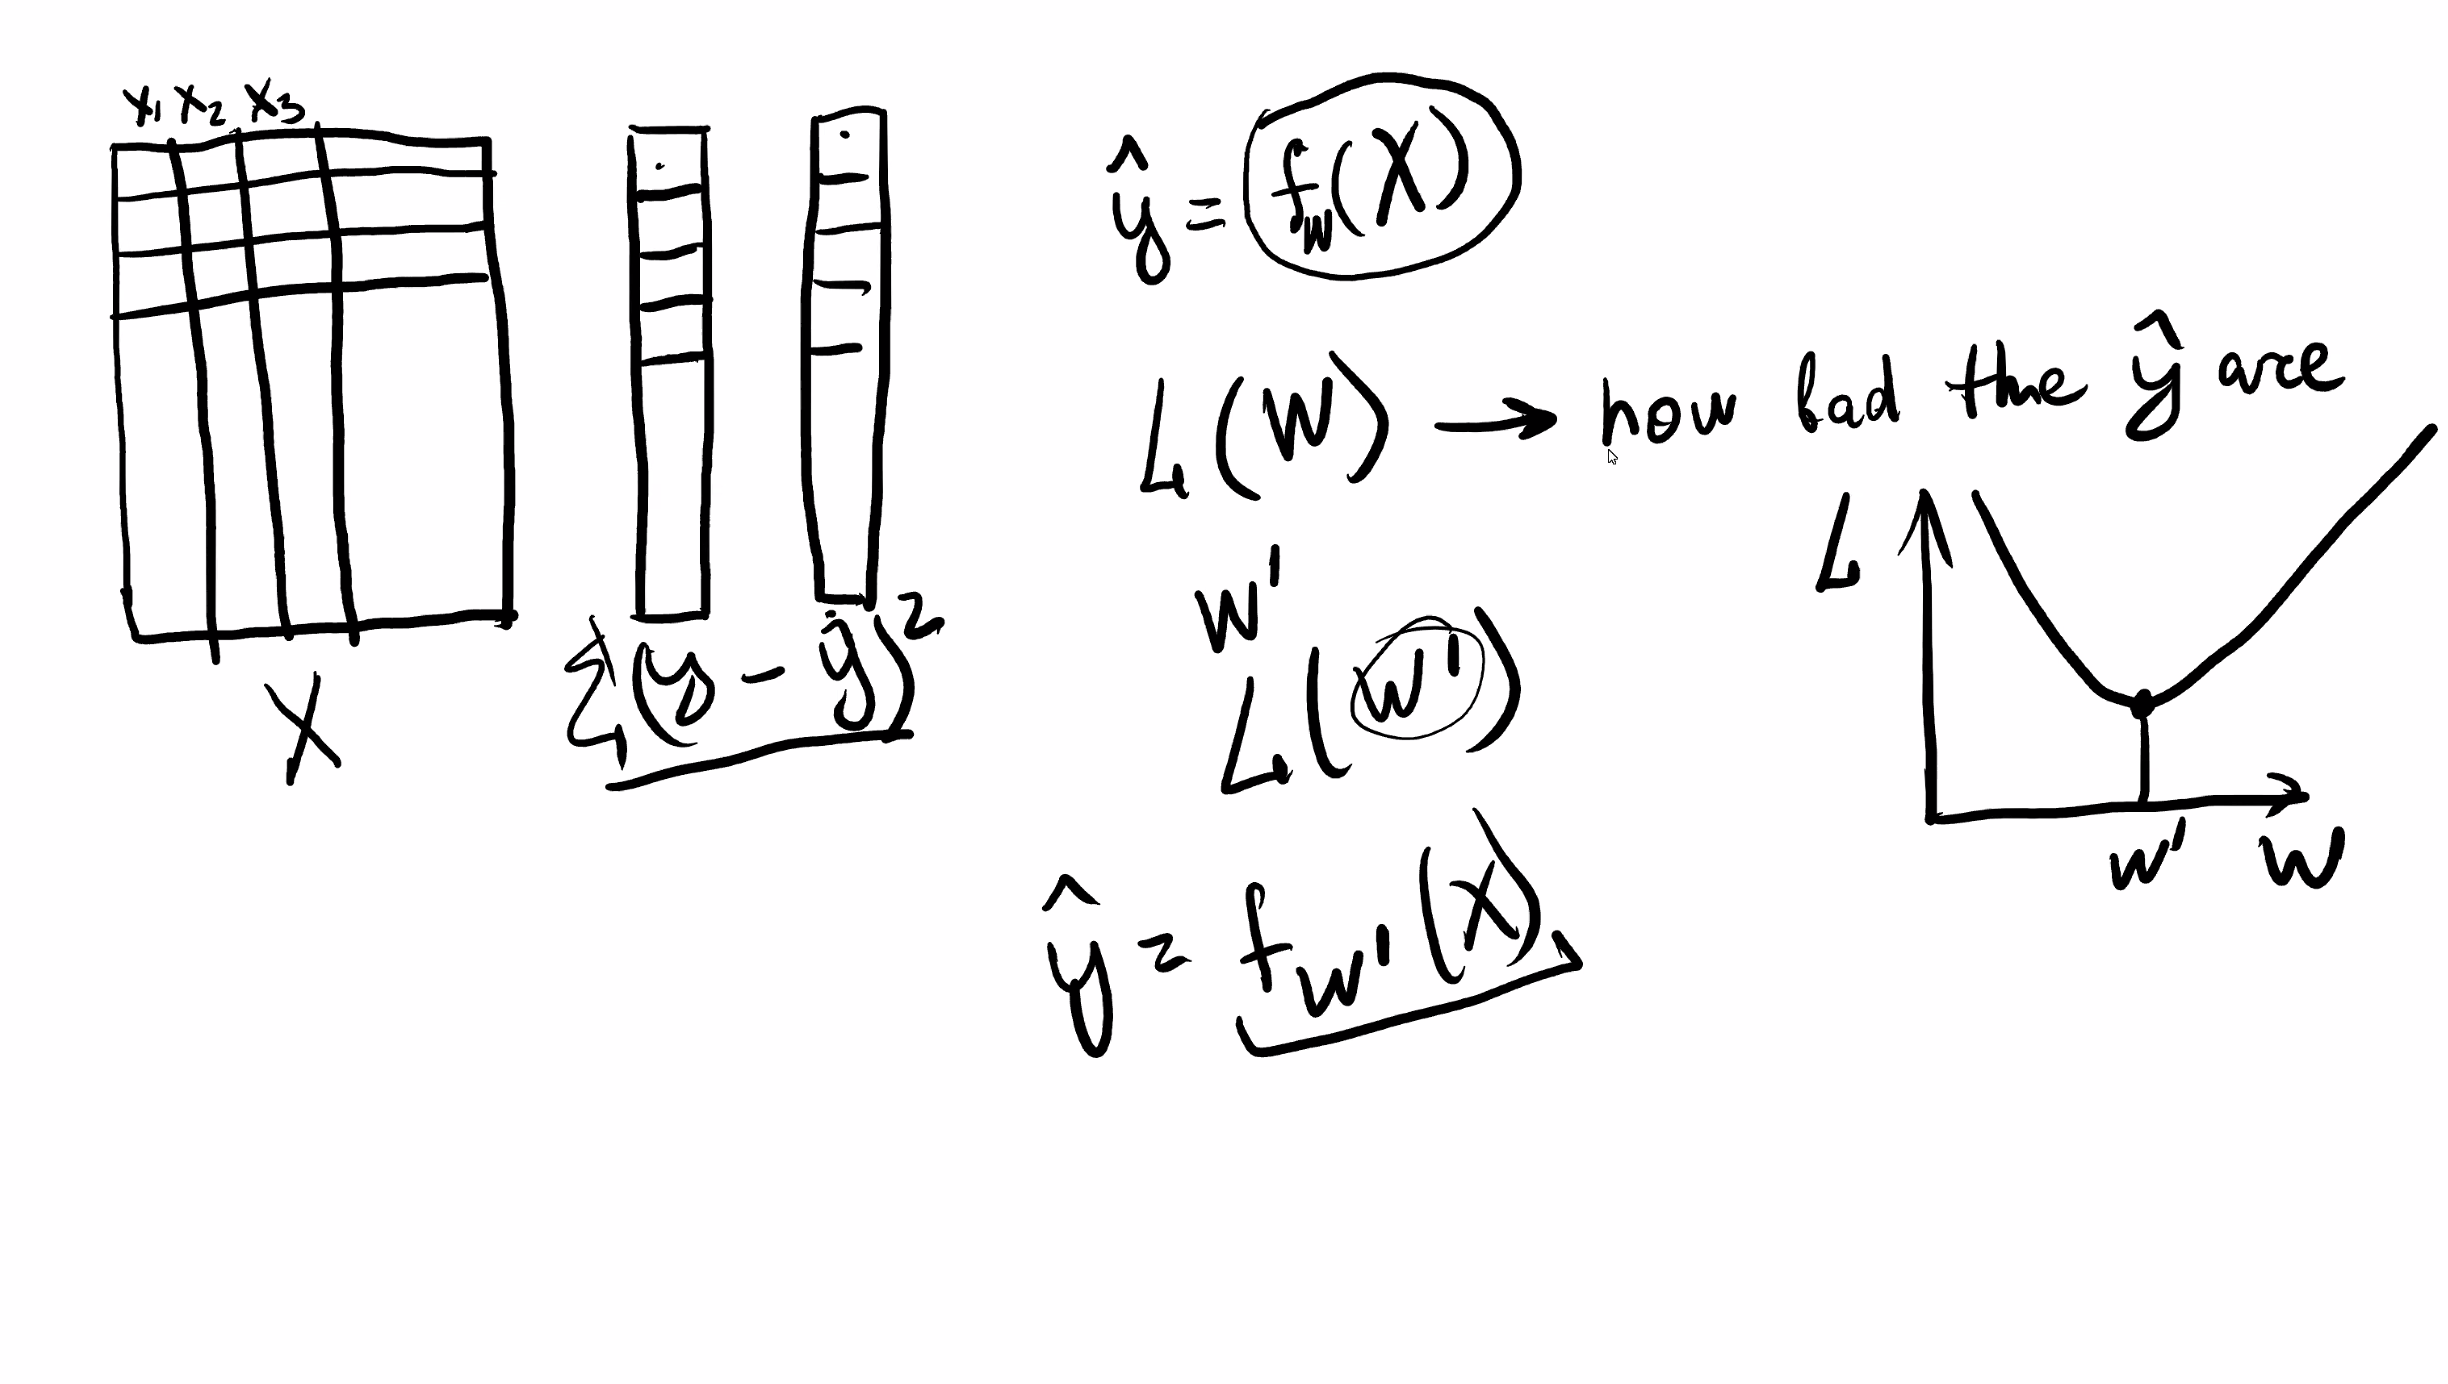 x1 x2 x3
X
Σ(y - ŷ)²
ŷ = f_W(X)
L(W) → how bad the ŷ are
W'
L(W')
ŷ = f_W'(X)
L
W' W